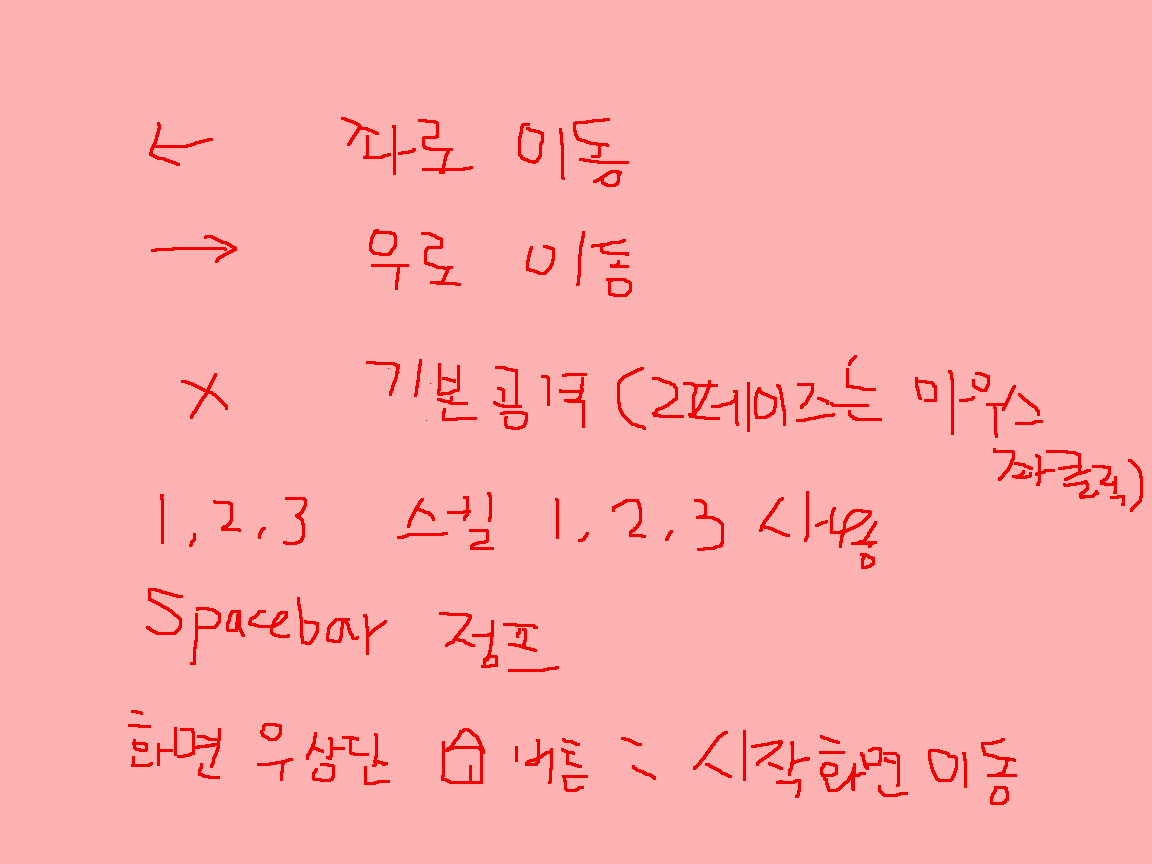 ← 좌로 이동
→ 우로 이동
X 기본공격 (2페이즈는 마우스
좌클릭)
1, 2, 3 스킬 1, 2, 3 사용
Spacebar 점프
화면 우상단 버튼 : 시작화면 이동